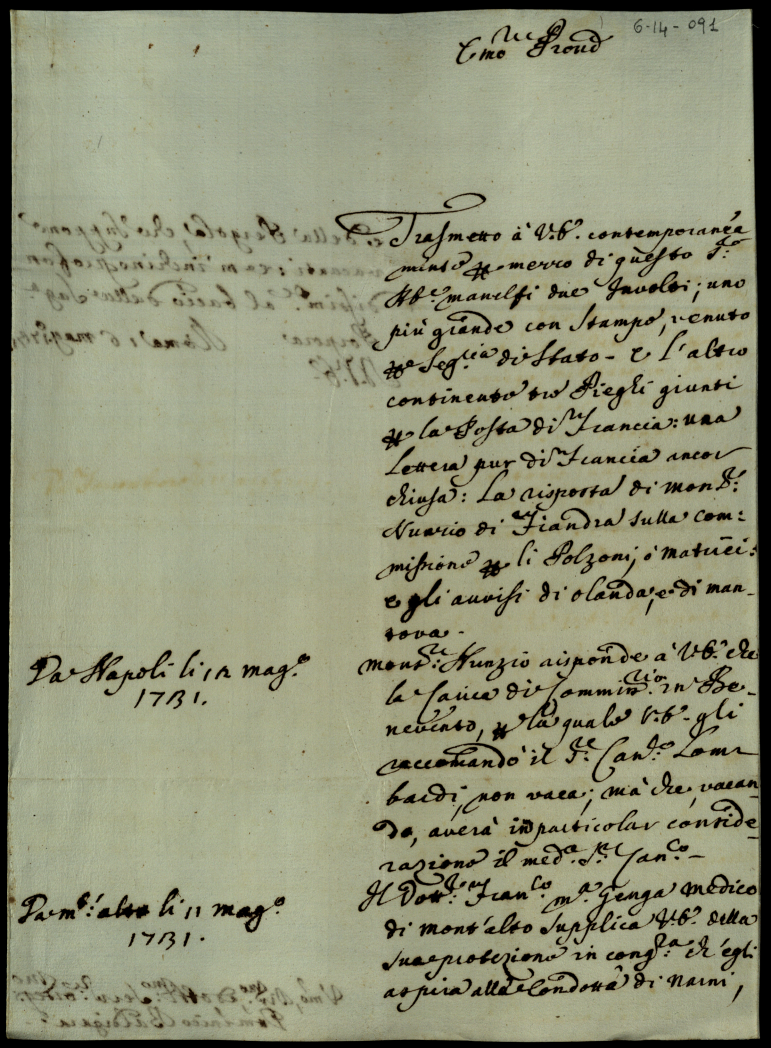 6-14-091
Emo Prond
Trasmetto à V.E. contemporanea
mente per mezzo di questo S.r
Ab.e Manelfi due Involti; uno
più grande con stampe, venuto
per Seg.ria di Stato - e l'altro
continente tre Pieghi giunti
per la Posta di Francia: una
Lettera pur di Francia ancor
chiusa: La risposta di Mons.r
Nunzio di Fiandra sulla com:
missione per li Polzoni, ò matrici:
e gli avvisi di Olanda, e di Man-
tova.
Da Napoli li 12 mag.o
1731.
Mons.r Nunzio risponde à V.E. che
la Carica di Commis.rio in Be-
nevento, per la quale V.E. gli
raccomandò il S.r Can.co Lom-
bardi, non vaca; mà che, vacan-
do, averà in particolar conside-
razione il med.o S.r Can.co -
Da M.t'alto li 11 mag.o
1731.
Il Dott.r Fran.co M.a Genga Medico
di Mont'alto supplica V.E. della
sua protezione in cong.ra ch'egli
aspira alla Condotta di Narni,